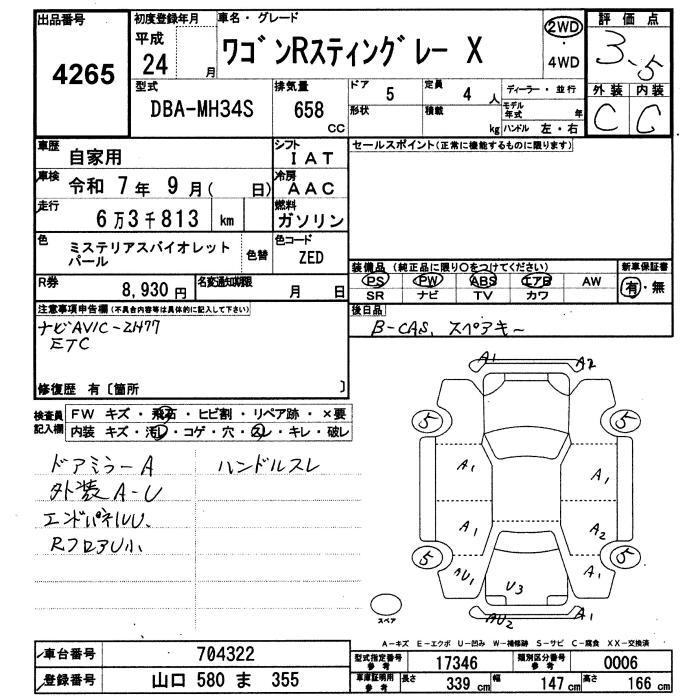 出品番号
4265
初度登録年月
平成
24 月
車名・グレード
ワゴンRスティングレー X
2WD
・
4WD
評価点
3.5
外装 内装
C C
型式
DBA-MH34S
排気量
658
CC
ドア 5
定員 4 人
形状
積載 kg
ディーラー・並行
モデル年式 年
ハンドル 左・右
車歴
自家用
シフト
IAT
セールスポイント(正常に機能するものに限ります)
車検
令和 7 年 9 月( 日)
冷房
AAC
走行
6万3千813 km
燃料
ガソリン
色
ミステリアスバイオレット
パール
色替
色コード
ZED
装備品 (純正品に限り○をつけてください)
新車保証書
PS PW ABS エアB AW
SR ナビ TV カワ
有・無
R券
8,930円
名変通知期限
月 日
後日品
B-CAS、スペアキー
注意事項申告欄(不具合内容等は具体的に記入して下さい)
ナビAVIC-ZH77
ETC
修復歴 有〔箇所 〕
検査員
記入欄
FW キズ・飛石・ヒビ割・リペア跡・×要
内装 キズ・汚レ・コゲ・穴・スレ・キレ・破レ
ドアミラーA
ハンドルスレ
外装A-U
エンドパネルU、
RフロアU小
A1
A2
5
5
A1
A1
A1
A2
5
5
AU1
U3
A1
AU2
A1
スペア
A-キズ E-エクボ U-凹み W-補修跡 S-サビ C-腐食 XX-交換済
車台番号
704322
型式指定番号
参考
17346
類別区分番号
参考
0006
登録番号
山口 580 ま 355
車庫証明用
参考
長さ 339 cm
幅 147 cm
高さ 166 cm